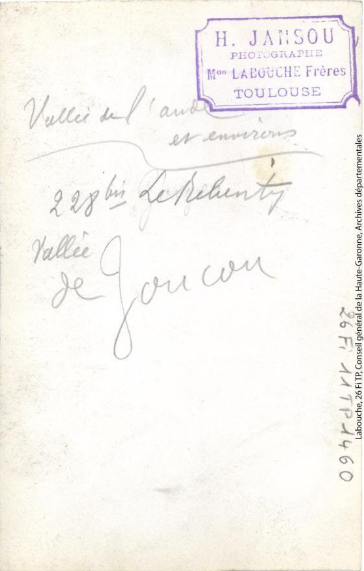 H. JANSOU
PHOTOGRAPHE
Mon LABOUCHE Frères
TOULOUSE
Vallée de l'aude
et environs
228 bis Le Rebenty
Vallée
de Joucou
26 Fi 11 TP 1460
Labouche, 26 Fi TP, Conseil général de la Haute-Garonne, Archives départementales